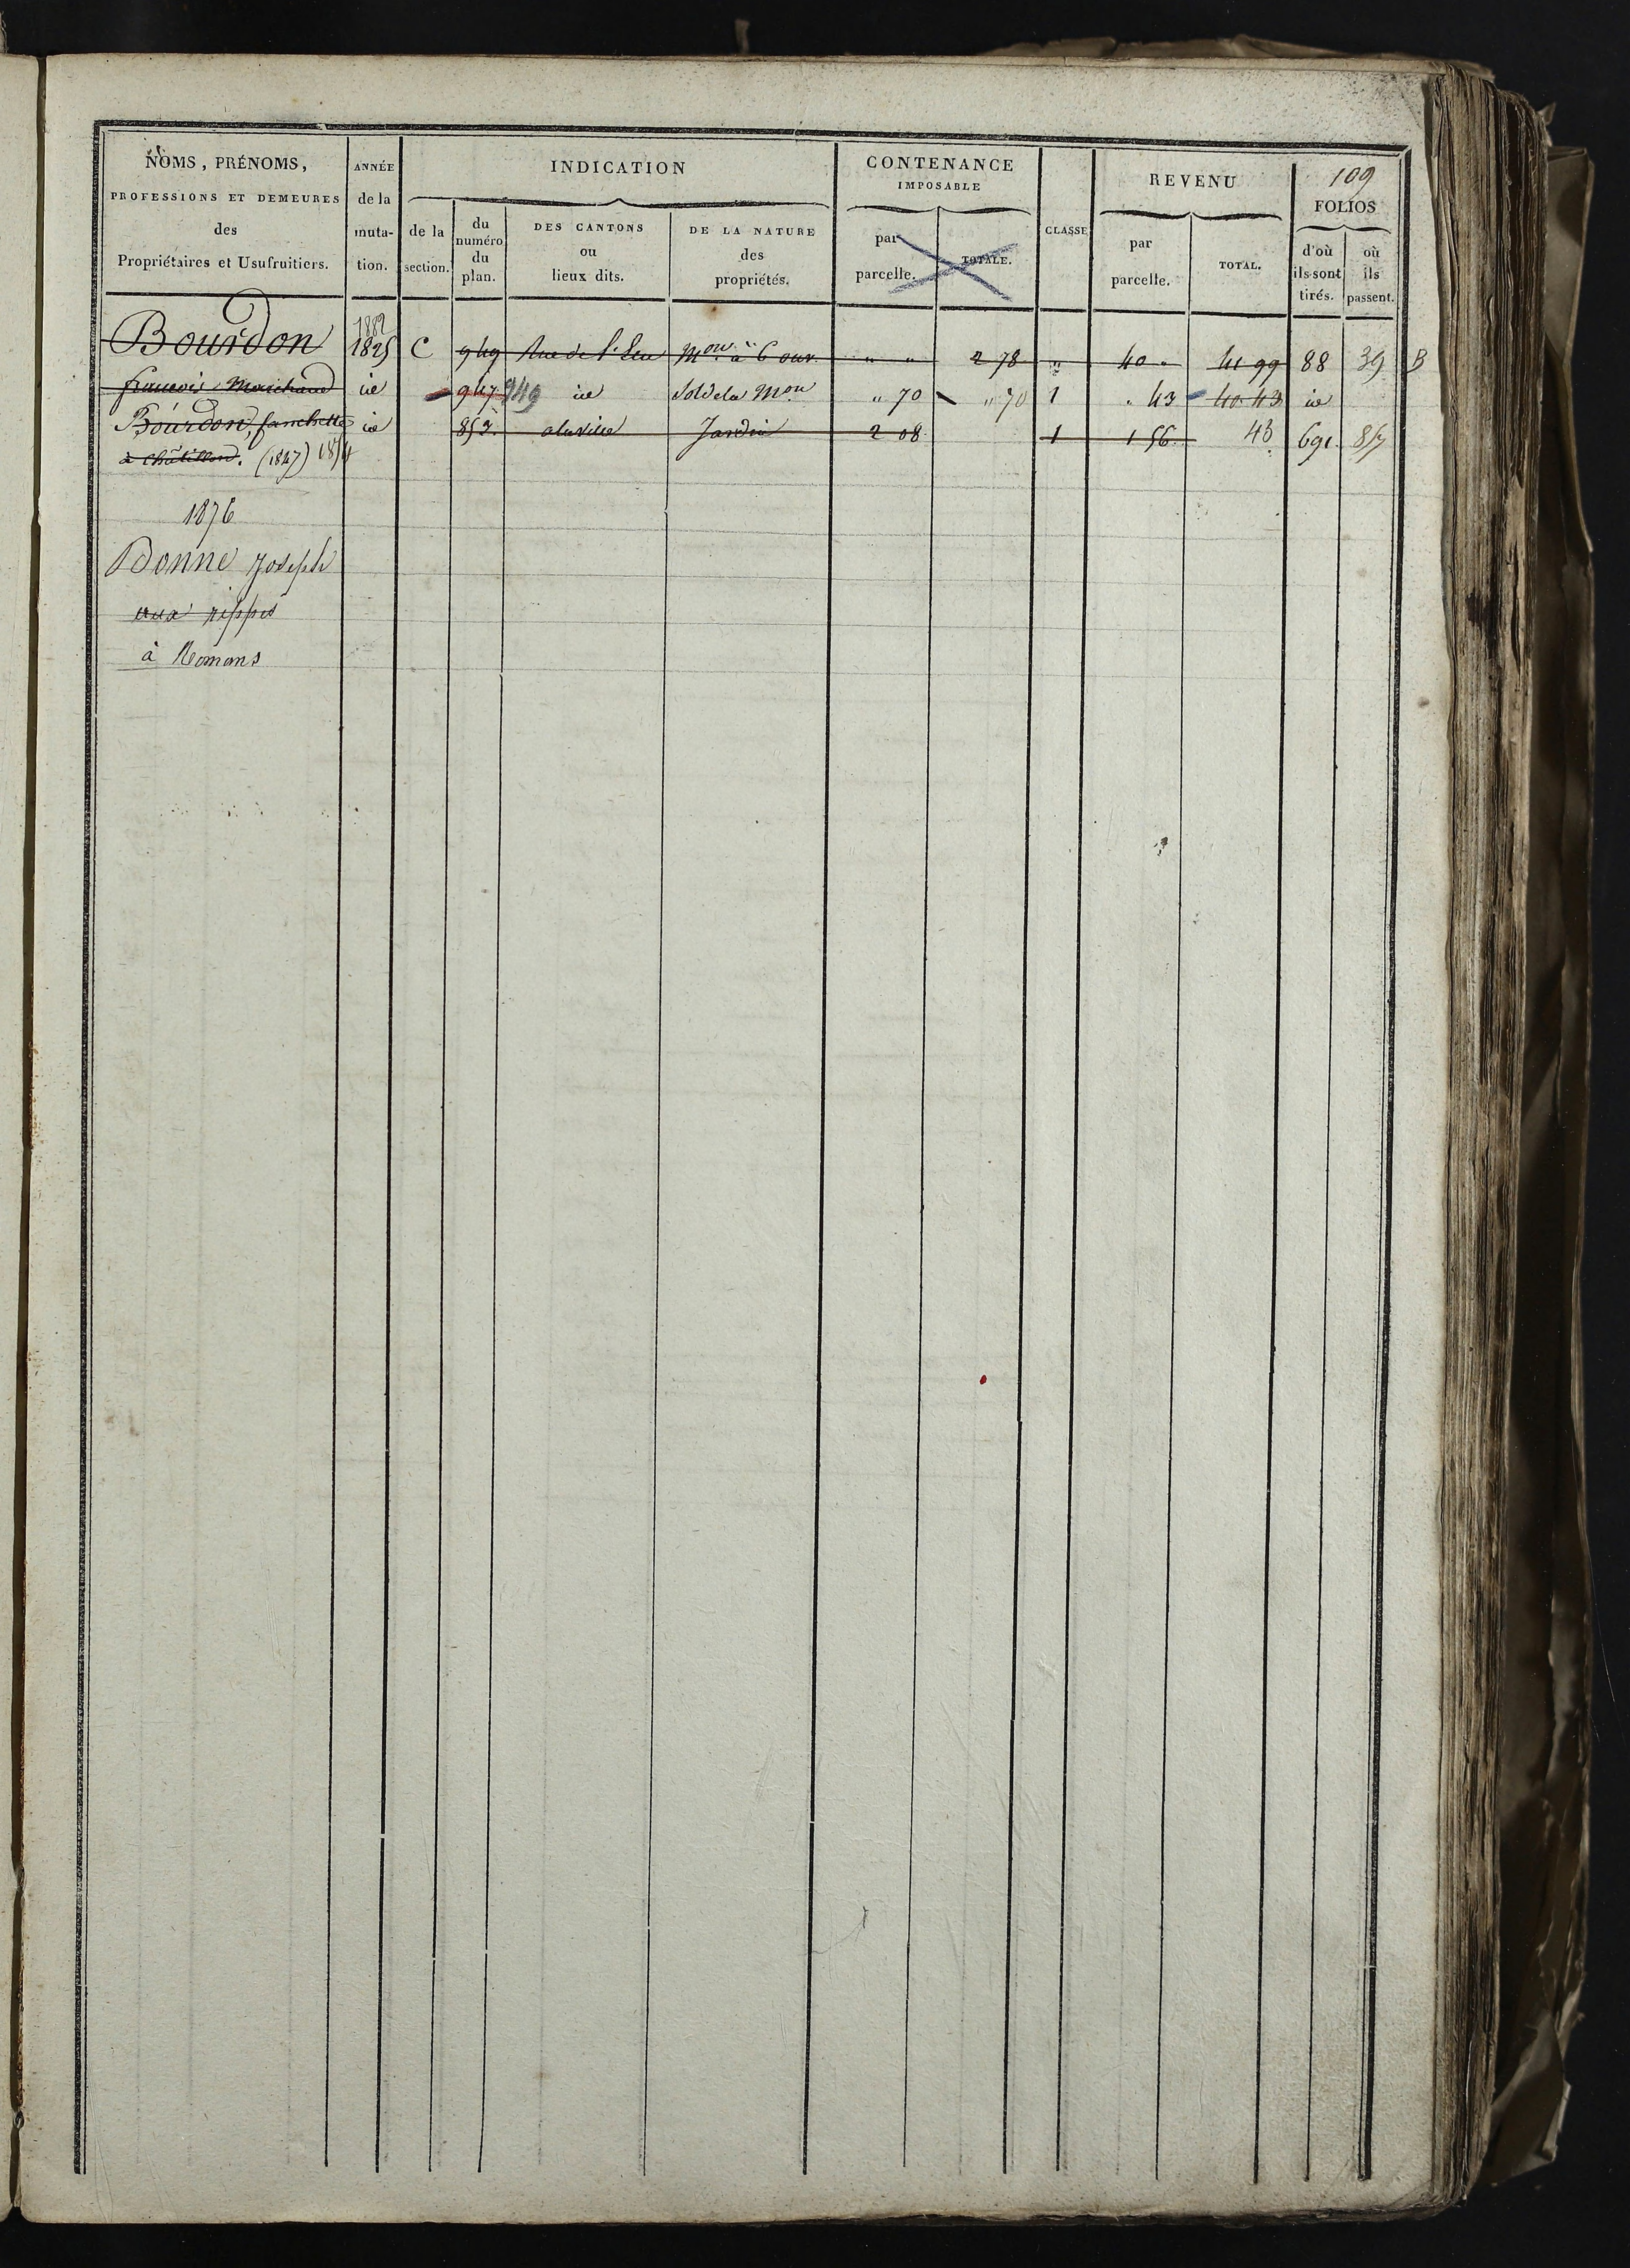 109
NOMS, PRÉNOMS,
PROFESSIONS ET DEMEURES
des
Propriétaires et Usufruitiers.
ANNÉE
de la
muta-
tion.
INDICATION
de la
section.
du
numéro
du
plan.
DES CANTONS
ou
lieux dits.
DE LA NATURE
des
propriétés.
CONTENANCE
IMPOSABLE
par
parcelle.
TOTALE.
CLASSE
REVENU
par
parcelle.
TOTAL.
FOLIOS
d'où
ils sont
tirés.
où
ils
passent.
1882
Bourdon 1825 C 949 Rue de l' Mon à 6 ouv. " " 2 78 " 40 " 41 99 88 39 B
francois Marchand id 947 949 id Sol de la Mon " 70 " 70 1 " 43 40 43 id
Bourdon, fanchette id 853 a la ville Jardin 2 08 1 1 56 43 691 857
à Châtillon. (1847) 1854
1876
Bonne Joseph
aux rippes
à Romans